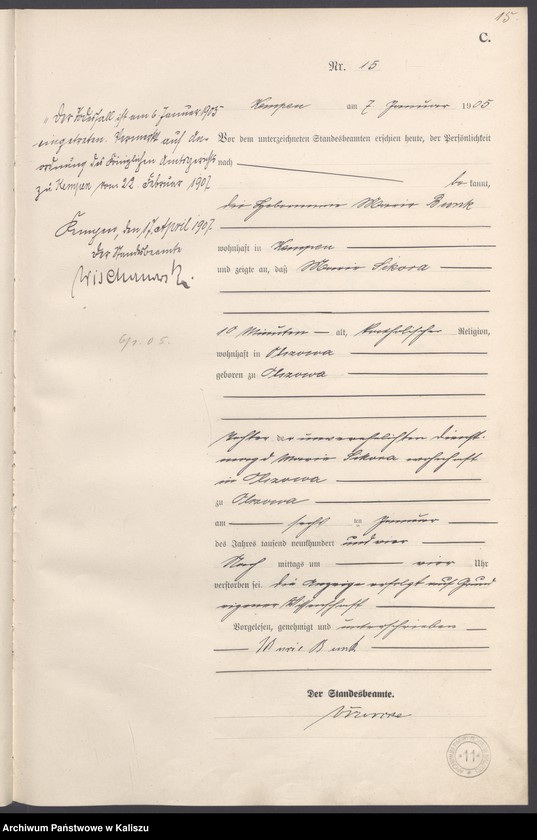 15.
C.
Nr. 15
Kempen am 7. Januar 1905
Vor dem unterzeichneten Standesbeamten erschien heute, der Persönlichkeit
nach
be kannt,
die Hebamme Marie Bunk
wohnhaft in Kempen
und zeigte an, daß Marie Sikora
10 Minuten alt, katholischer Religion,
wohnhaft in Olszowa
geboren zu Olszowa
Tochter der unverehelichten Dienst-
magd Marie Sikora wohnhaft
in Olszowa
zu Olszowa
am sechs ten Januar
des Jahres tausend neunhundert und vier
Nach mittags um vier Uhr
verstorben sei. Die Anzeige erfolgt auf Grund
eigener Wissenschaft
Vorgelesen, genehmigt und unterschrieben
Marie Bunk
Der Standesbeamte.
"Der Todesfall ist am 6 Januar 1905
eingetreten. Vermerkt auf An-
ordnung des Königlichen Amtsgerichts
zu Kempen vom 22. Februar 1907.
Kempen, den 17. April 1907.
Der Standesbeamte
11
Archiwum Państwowe w Kaliszu